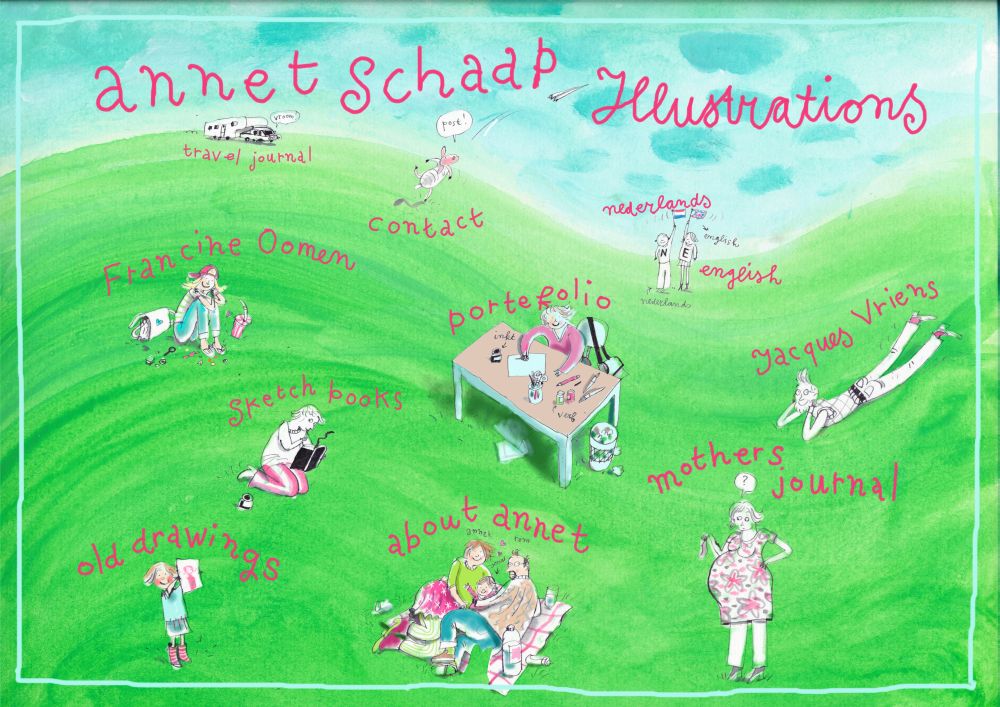 annet schaap Illustrations
vroom
travel journal
post!
contact
nederlands
english
N E
english
nederlands
Francine Oomen
portefolio
inkt
verf
Jacques Vriens
sketch books
mothers journal
?
about annet
annet
tom
old drawings